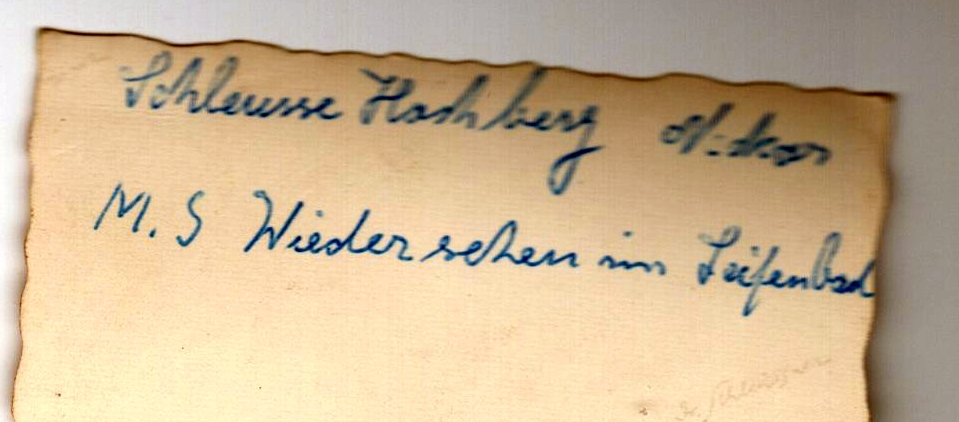 Schleusse Hochberg
M. S Wiedersehen im Seifenbad